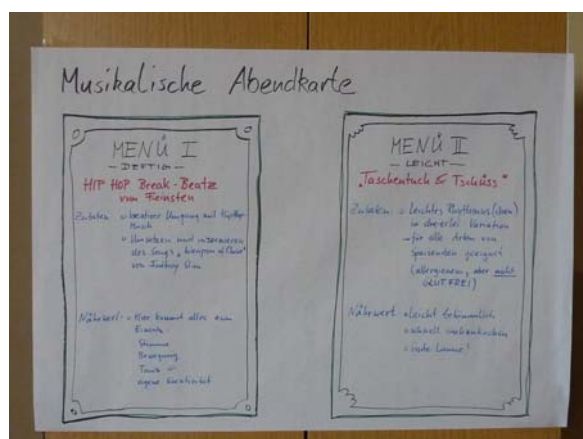 Musikalische Abendkarte
MENÜ I
— DEFTIG —
HIP HOP Break-Beatz
vom Feinsten
Zutaten kreativer Umgang mit Hip Hop
Musik
Umsetzen und
des Songs "
von
Nährwert: Hier kommt alles zum
Einsatz
Stimme
Bewegung
Tanz
eigene Kreativität
MENÜ II
— LEICHT —
"Taschentuch & Tschüss"
Zutaten: Leichtes Rhythmus(chen)
in dreierlei Variation
für alle Arten von
geeignet
(allergienarm, aber nicht
GLUTFREI)
Nährwert leicht bekömmlich
schnell
gute Laune!